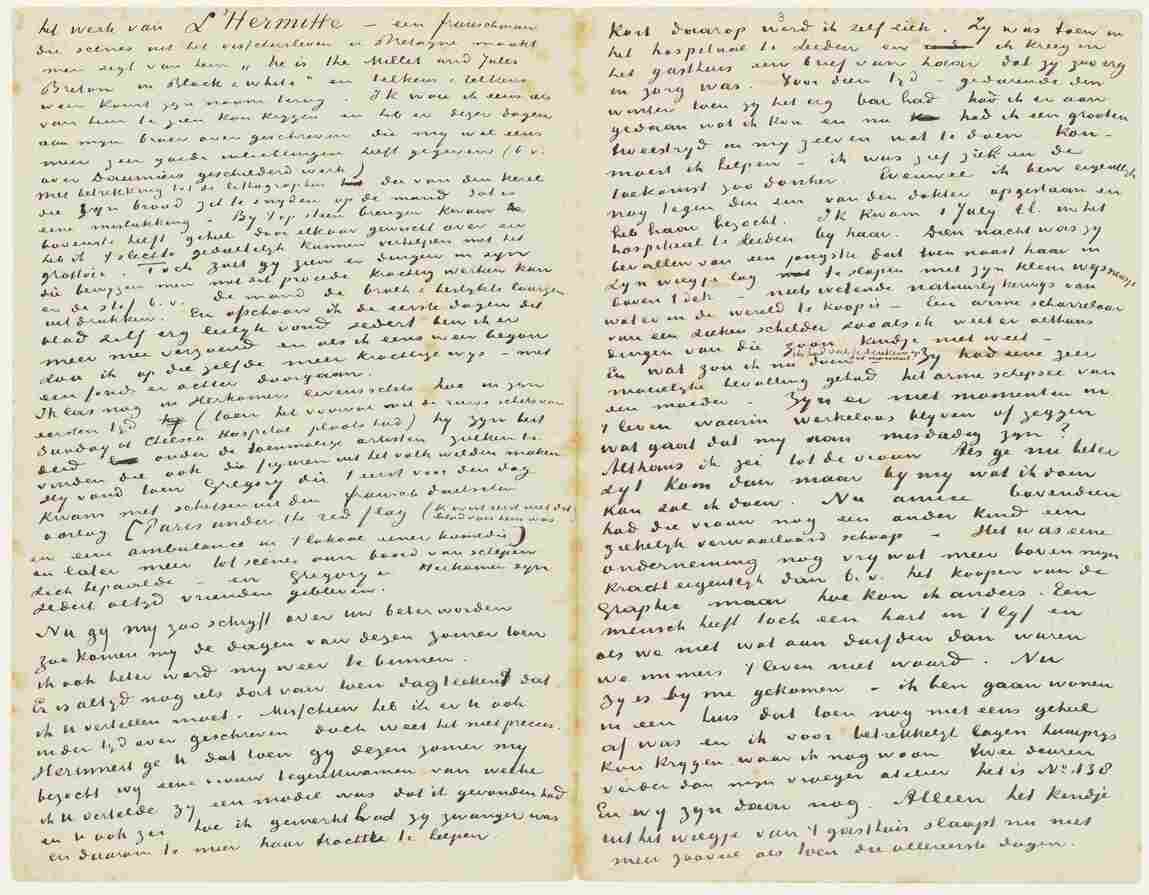 het werk van L'Hermitte – een franschman
die scènes uit het visschersleven in Bretagne maakt
men zegt van hem „he is the Millet and Jules
Breton in Black & white" en telkens & telkens
weer komt zyn naam terug. Ik wou ik eens iets
van hem te zien kon krygen en heb er dezer dagen
aan myn broer over geschreven die my wel eens
meer zeer goede inlichtingen heeft gegeven (b.v.
over Daumiers geschilderd werk)
Met betrekking tot de lithographie die van den kerel
die zyn brood zit te snyden op de mand dat is
eene mislukking. By 't op steen brengen kwam de
bovenste helft geheel door elkaar gevloeid over en
heb ik 't slechts gedeeltelyk kunnen verhelpen met het
grattoir. Toch zult gy zien er dingen in zyn
die bewyzen men met dit procede krachtig werken kan
en de stof b.v. de mand de broek & beslykte laarzen
uitdrukken. En ofschoon ik de eerste dagen dit
blad zelf erg leelyk vond sedert ben ik er
meer mee verzoend en als ik eens weer begon
zou ik op die zelfde meer krachtige wys – met
een fonds er achter doorgaan.
Ik las nog in Herkomers levensschets hoe in zyn
eersten tyd (toen het voorval met de ruwe schets van
Sunday at Chelsea Hospital plaats had) hy zyn best
deed onder de toenmalige artisten zulken te
vinden die ook die figuren uit het volk wilden maken
Hy vond toen Gregory die 't eerst voor den dag
kwam met schetsen uit den fransch duitschen
oorlog [Paris under the red flag (ik wist eerst niet dat
dat blad van hem was
en eene ambulance in 't lokaal eener komedie)
en later meer tot scènes aan boord van schepen
zich bepaalde – en Gregory & Herkomer zyn
sedert altyd vrienden gebleven.
Nu gy my zoo schryft over uw beter worden
zoo komen my de dagen van dezen zomer toen
ik ook beter werd my weer te binnen.
Er is altyd nog iets dat van toen dagteekent dat
ik U vertellen moet. Misschien heb ik er U ook
indertyd over geschreven doch weet het niet precies.
Herinnert ge U dat toen gy dezen zomer my
bezocht wy eene vrouw tegenkwamen van welke
ik U vertelde zy een model was dat ik gevonden had
en U ook zei hoe ik gemerkt had zy zwanger was
en daarom te meer haar trachtte te helpen.
3
Kort daarop werd ik zelf ziek. Zy was toen in
het hospitaal te Leiden en ik kreeg in
het gasthuis een brief van haar dat zy zoo erg
in zorg was. Voor dien tyd – gedurende den
winter toen zy het erg bar had had ik er aan
gedaan wat ik kon en nu had ik een grooten
tweestryd in my zelven wat te doen. Kon –
moest ik helpen – ik was zelf ziek en de
toekomst zoo donker. Evenwel ik ben eigentlyk
nog tegen den zin van den dokter opgestaan en
heb haar bezocht. Ik kwam 1 July l.l. in het
hospitaal te Leiden by haar. Dien nacht was zy
bevallen van een jongetje dat toen naast haar in
zyn wiegje lag te slapen met zyn klein wysneusje
boven 't dek – niets wetende natuurlyk erwys van
wat er in de wereld te koop is – Een arme scharrelaar
van een zieken schilder zooals ik weet er althans
dingen van die zoo'n kindje niet weet –
En wat zou ik nu doen
ik had wel te denken op 't moment
Zy had eene zeer
moeielyke bevalling gehad het arme schepsel van
een moeder – Zyn er niet momenten in
't leven waarin werkeloos blyven of zeggen
wat gaat dat my aan misdadig zyn?
Althans ik zei tot de vrouw Als ge nu beter
zyt kom dan maar by my wat ik doen
kan zal ik doen. Nu amice bovendien
had die vrouw nog een ander kind een
ziekelyk verwaarloosd schaap – Het was eene
onderneming nog vry wat meer boven myn
kracht eigentlyk dan b.v. het koopen van de
Graphic maar hoe kon ik anders. Een
mensch heeft toch een hart in 't lyf en
als we niet wat aan durfden dan waren
we immers 't leven niet waard. Nu
zy is by me gekomen – ik ben gaan wonen
in een huis dat toen nog niet eens geheel
af was en ik voor betrekkelyk lagen huurprys
kon krygen waar ik nog woon twee deuren
verder dan myn vroeger atelier het is N° 138
En wy zyn daar nog. Alleen het kindje
uit het wiegje van 't gasthuis slaapt nu niet
meer zooveel als toen die allereerste dagen.